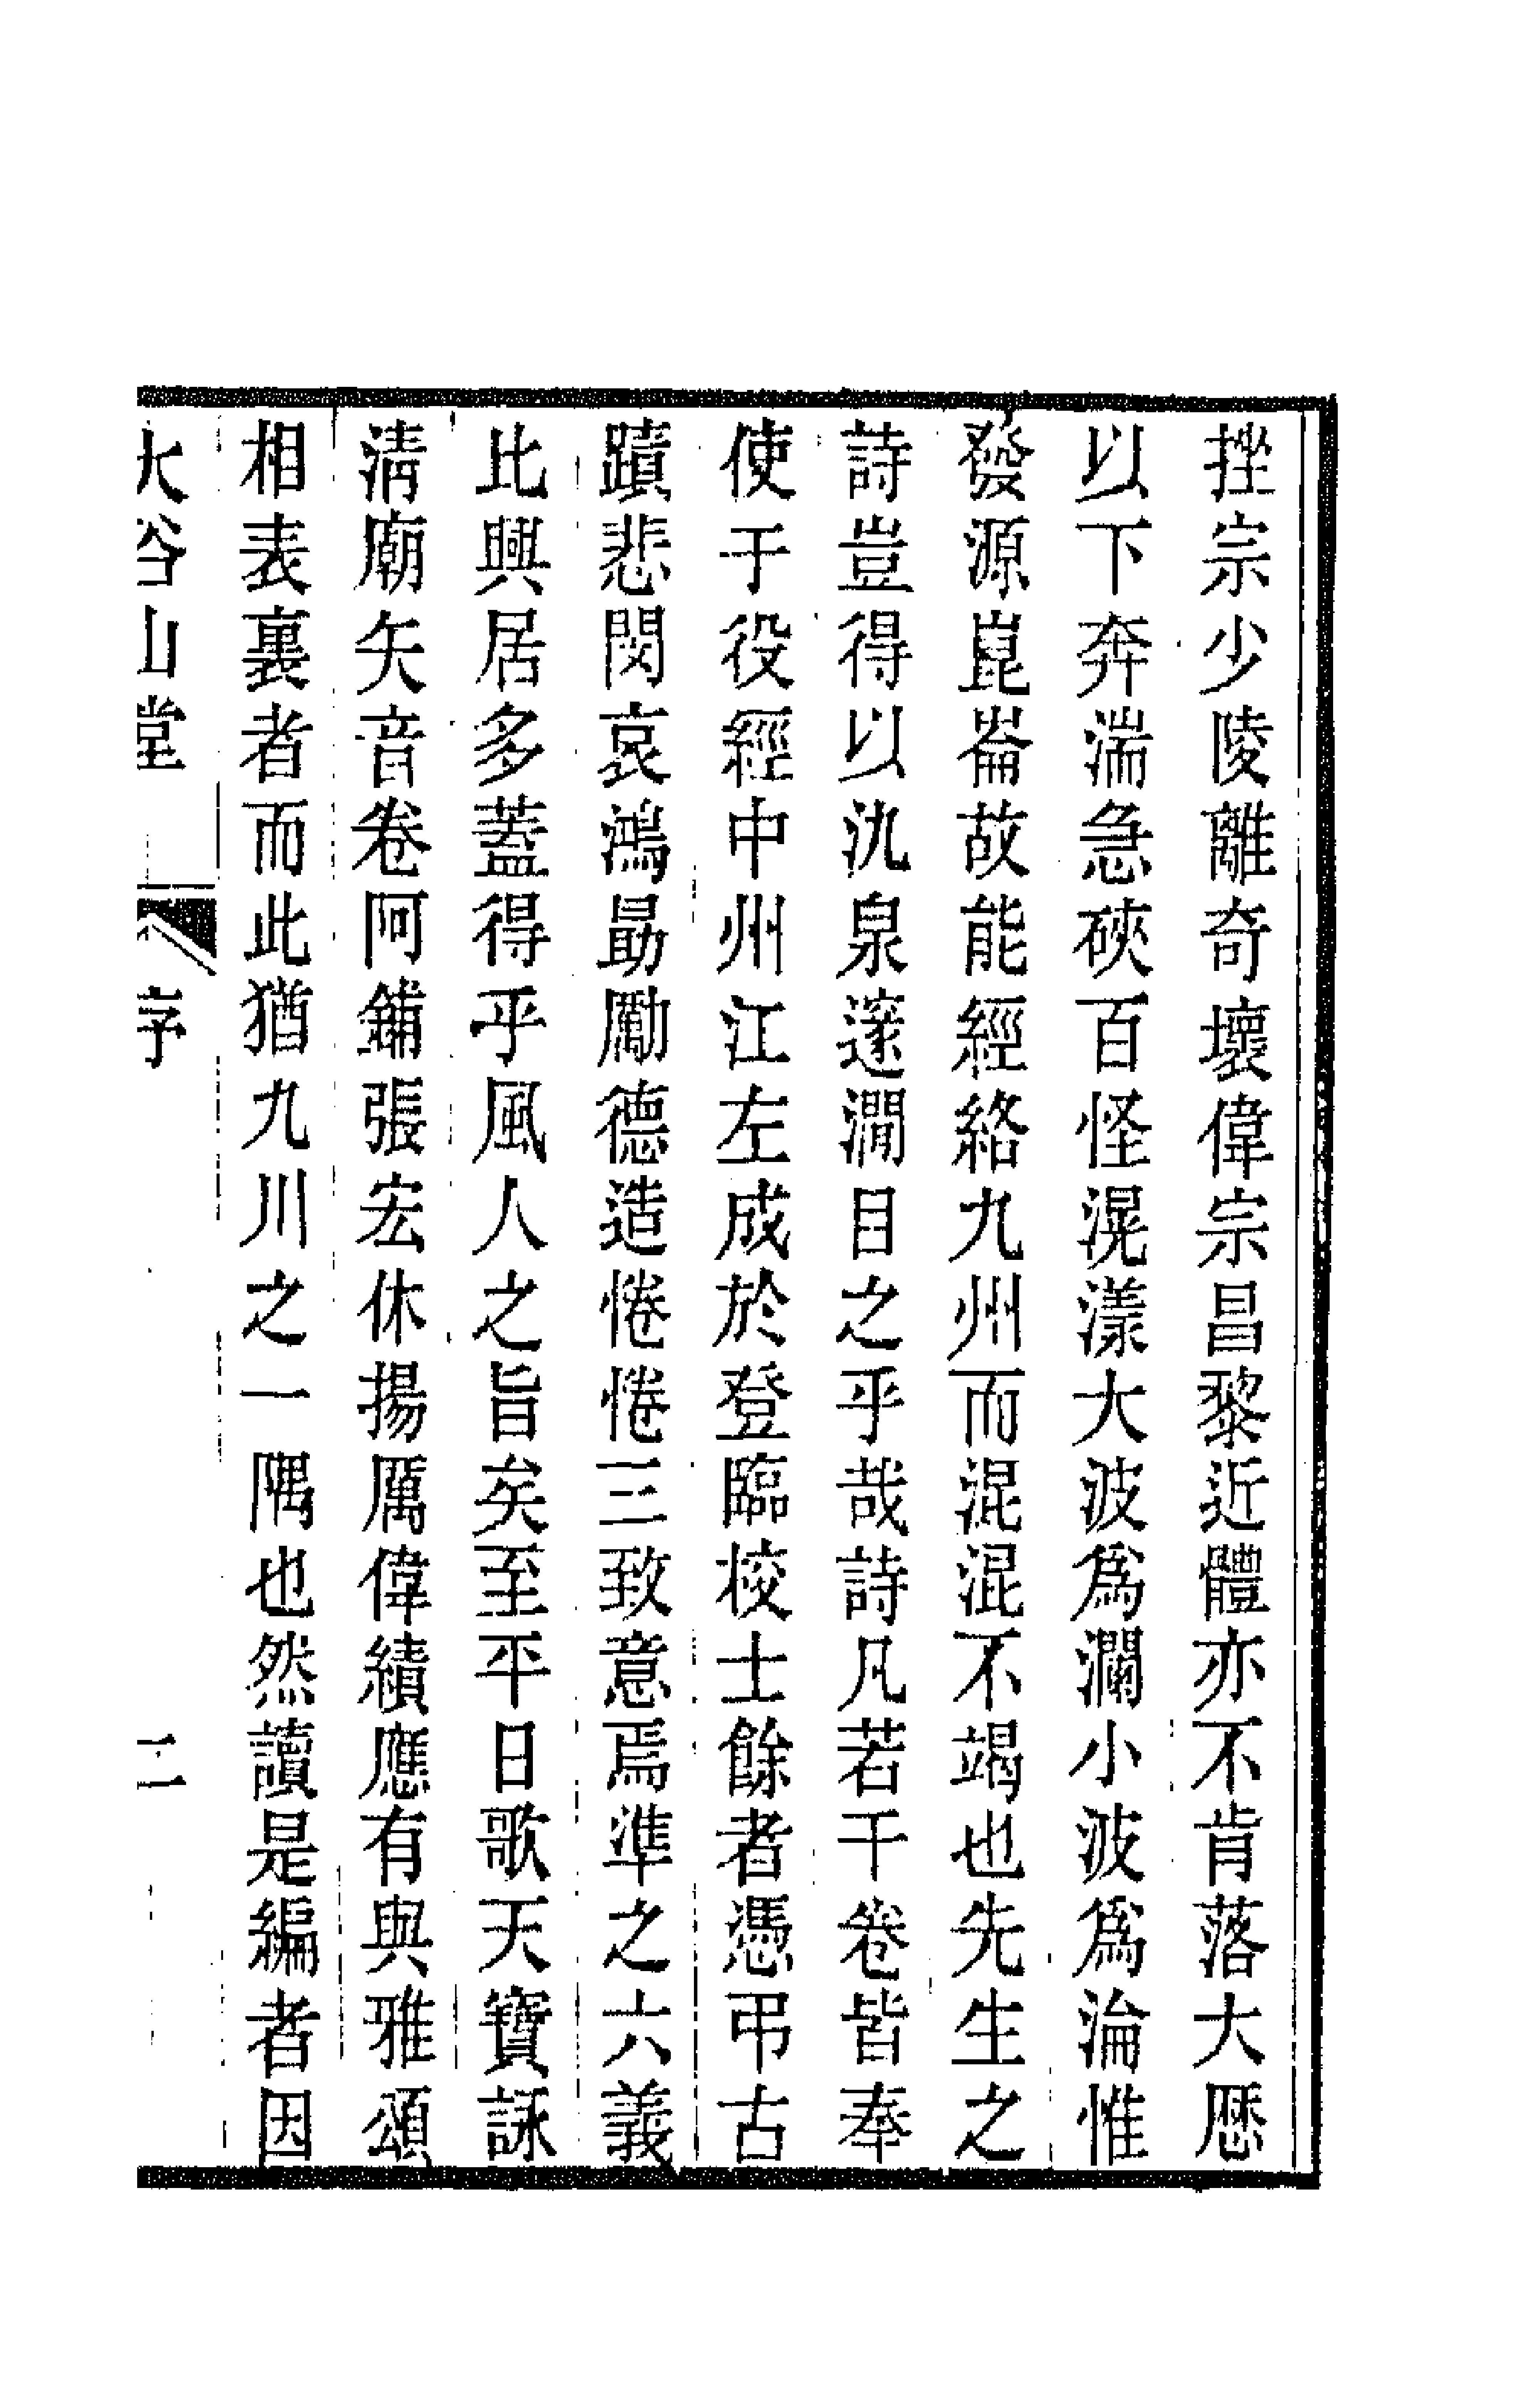 挫宗少陵離奇壞偉宗昌黎近體亦不肯落大厯
以下奔湍急硤百怪滉漾大波爲瀾小波爲淪惟
發源崑崙故能經絡九州而混混不竭也先生之
詩豈得以氿泉邃澗目之乎哉詩凡若干卷皆奉
使于役經中州江左成於登臨校士餘者憑弔古
蹟悲閔哀鴻勗勵德造惓惓三致意焉準之六義
比興居多蓋得乎風人之旨矣至平日歌天寶詠
清廟矢音卷阿鋪張宏休揚厲偉績應有與雅頌
相表裏者而此猶九川之一隅也然讀是編者因
大谷山堂 序 二